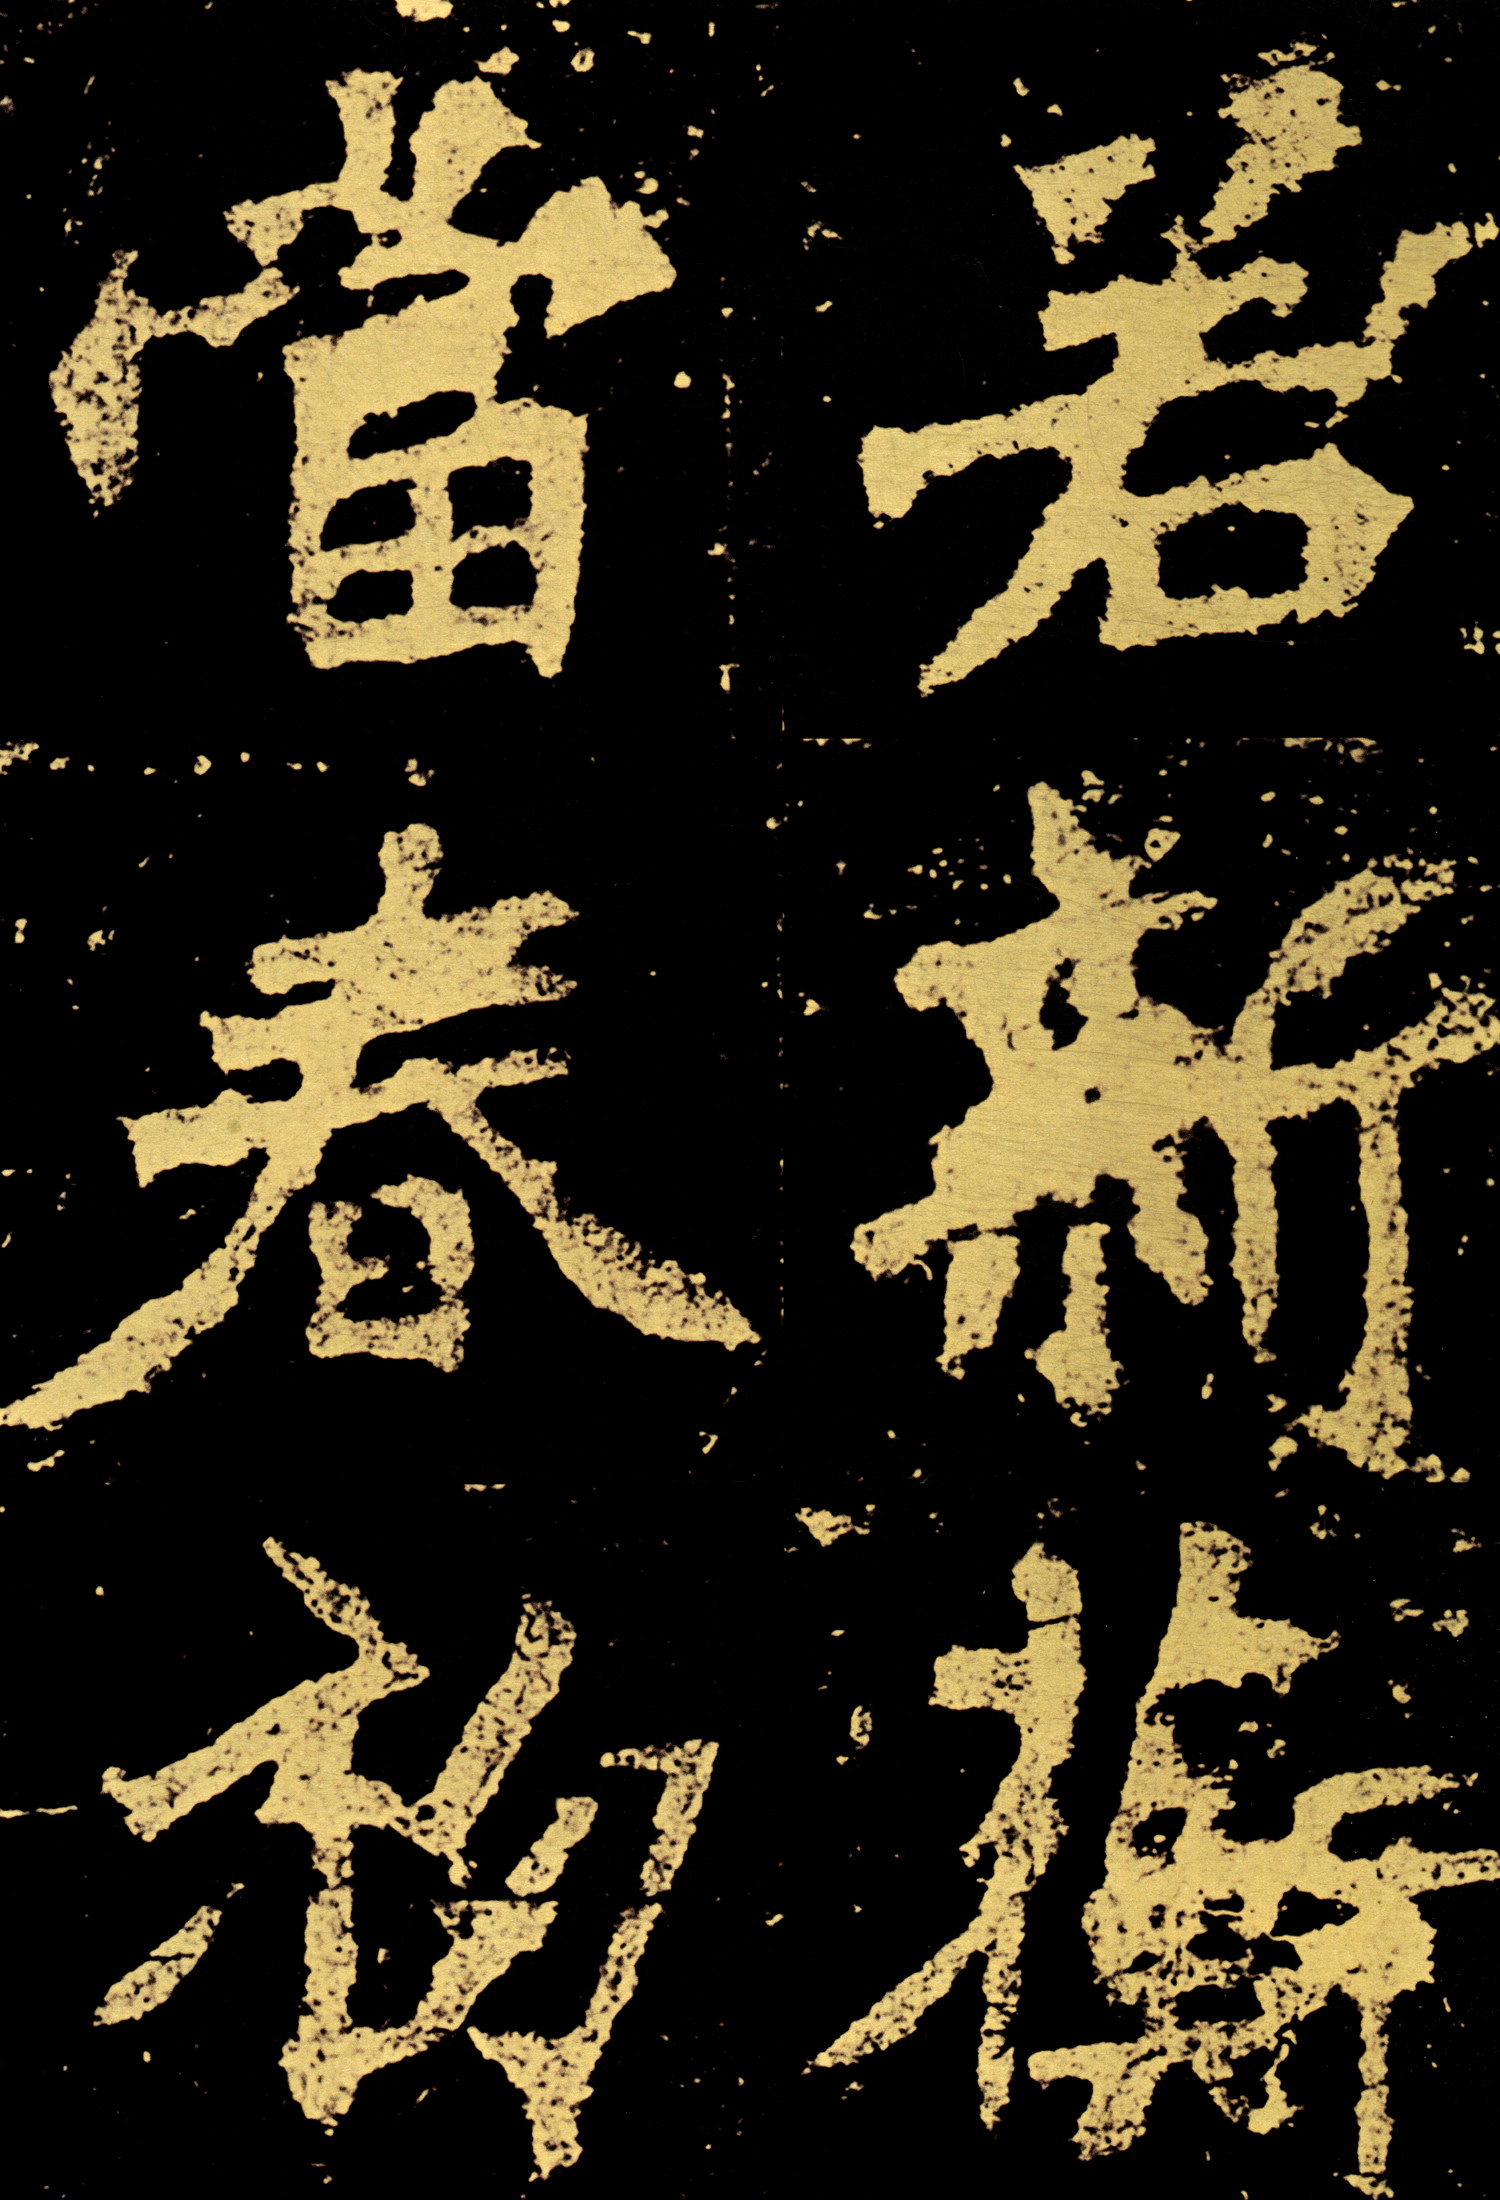 若新衡
當春初